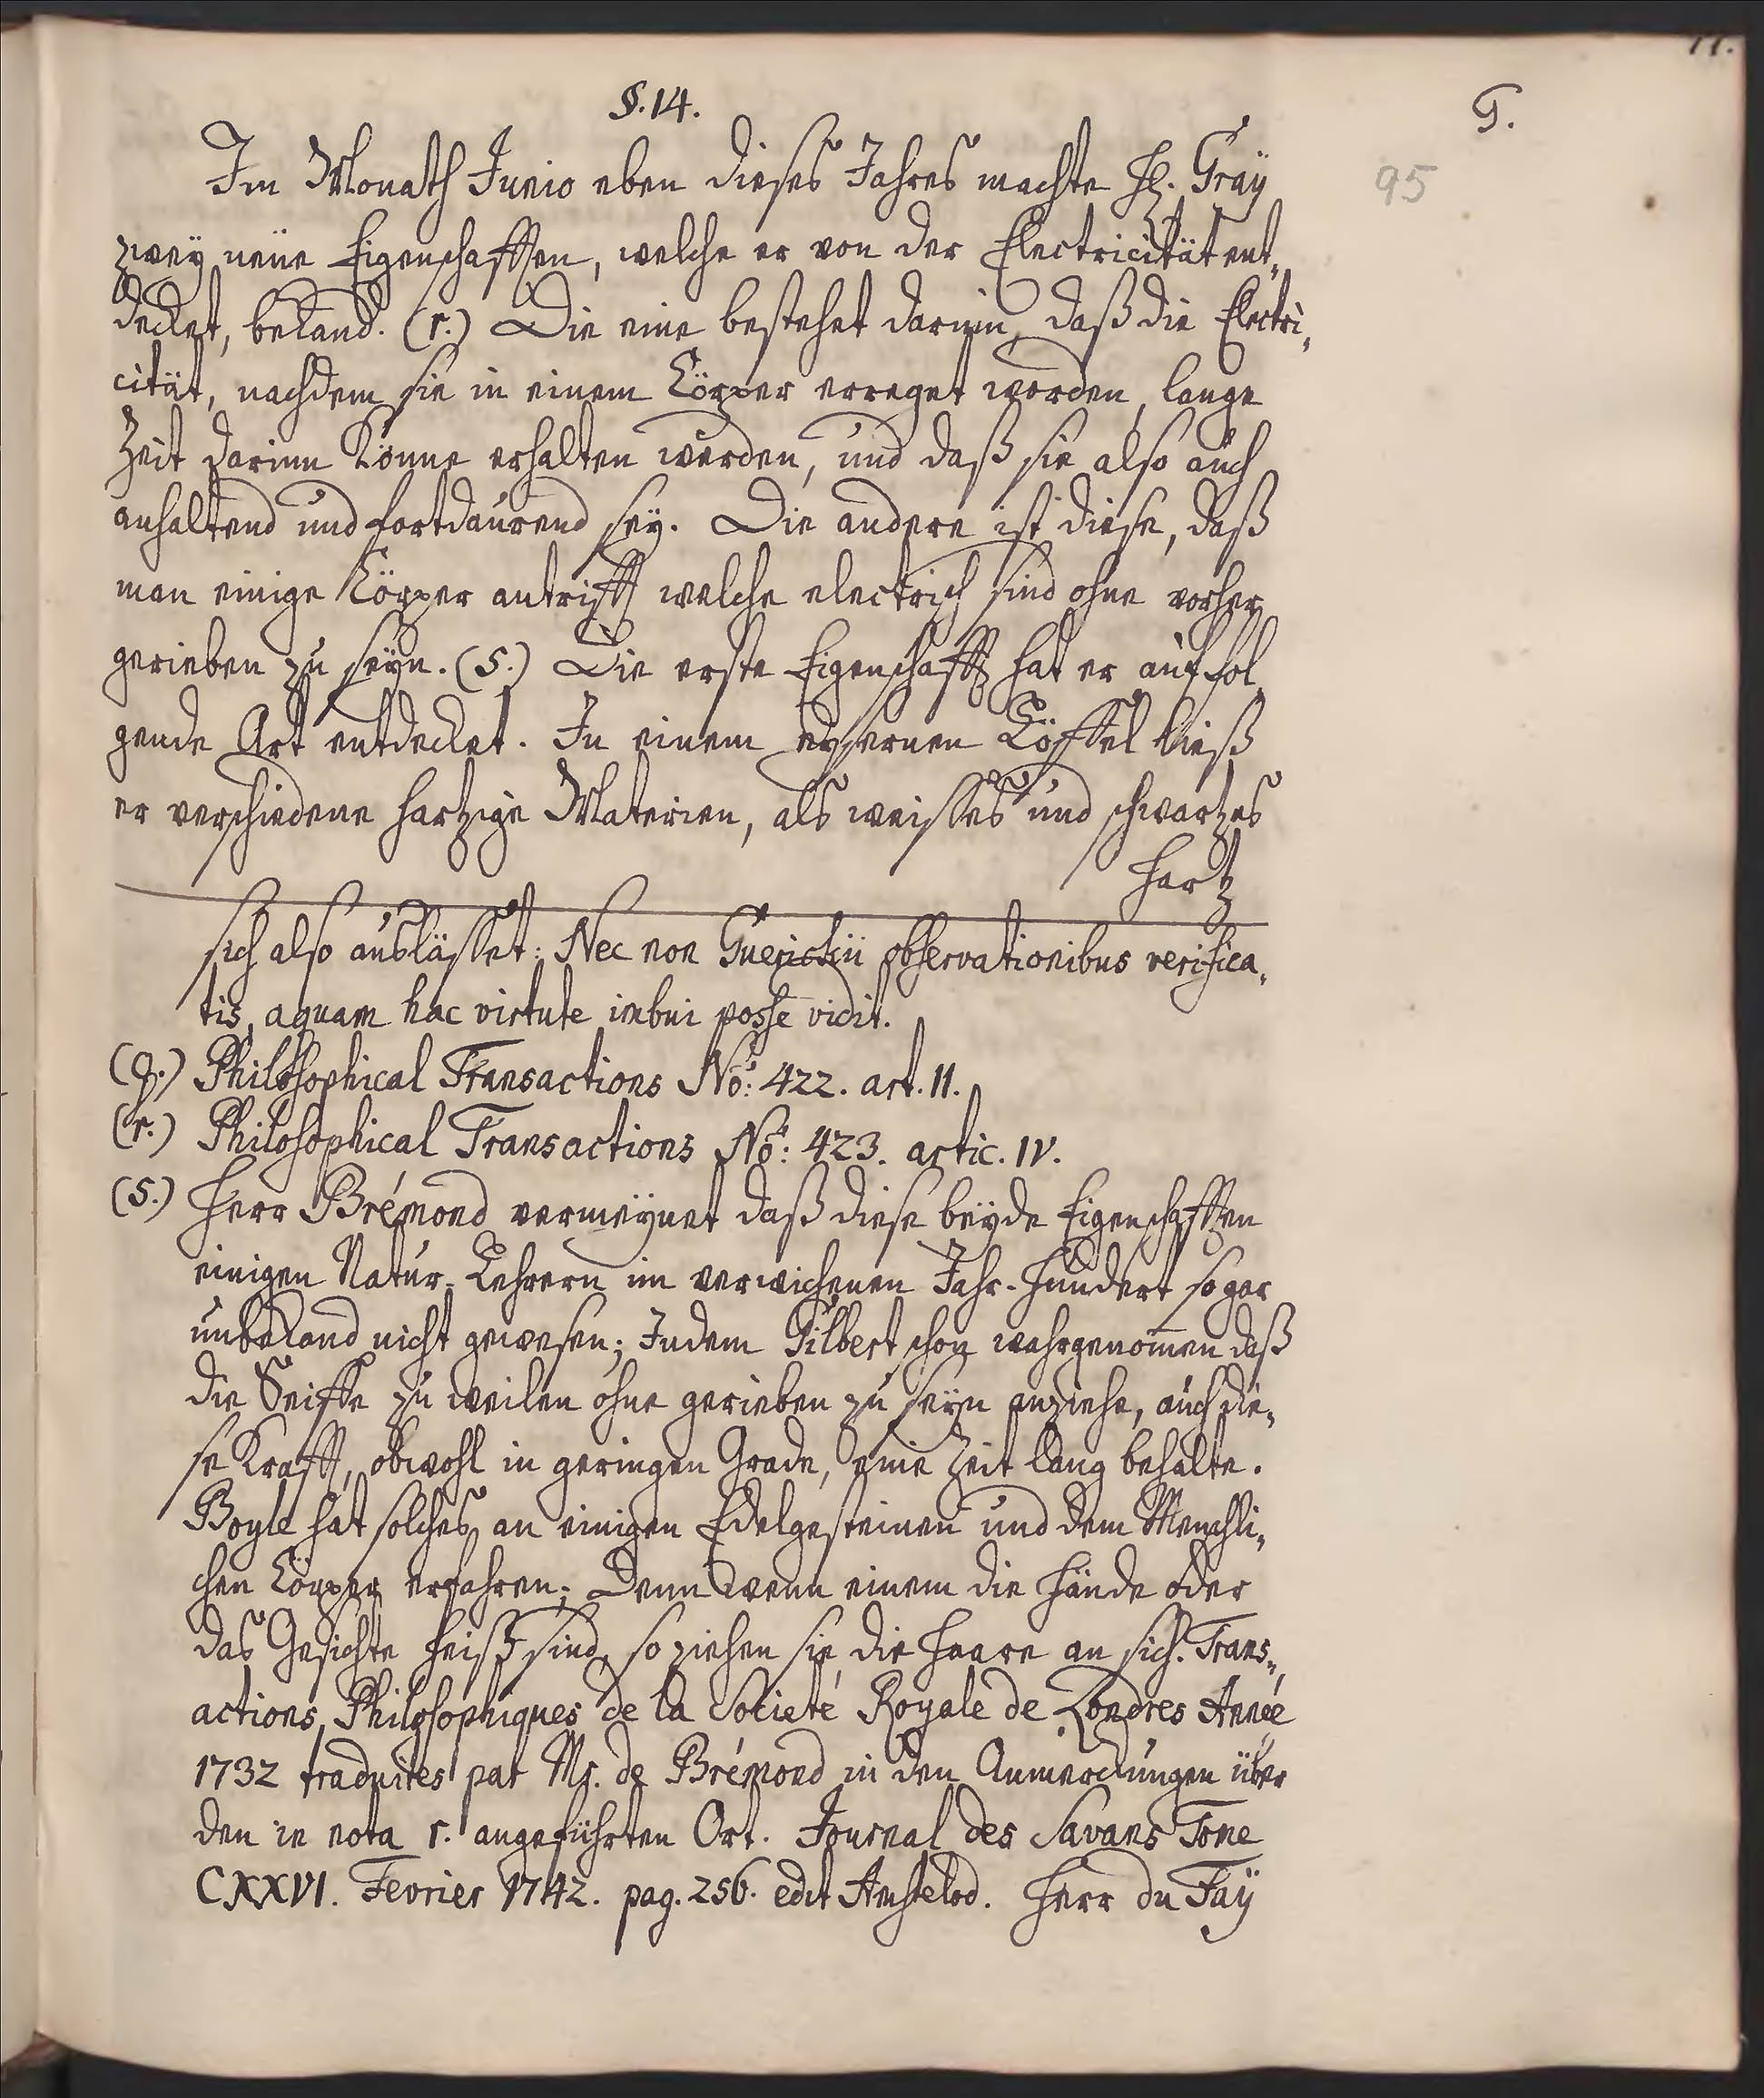 §. 14.
G.
95
Im Monath Junio eben dieses Jahres machte H. Graÿ
zweÿ neüe Eigenschafften, welche er von der Electricität ent„
decket, bekand. (r.) Die eine bestehet darinn, daß die Electri„
cität, nachdem sie in einem Cörper erreget worden, lange
Zeit darinn könne erhalten werden, und daß sie also auch
anhaltend und fortdaurend seÿ. Die andere ist diese, daß
man einige Cörper antrifft welche electrisch sind ohne vorher
gerieben zu seÿn. (s.) Die erste Eigenschafft hat er auf fol„
gende Art entdecket. In einem eysernen Löffel ließ
er verschiedene hartzige Materien, als weisses und schwartzes
Hartz
sich also ausläßet: Nec non Guerickii observationibus verifica„
tis, aquam hac virtute imbui posse vidit.
(q.) Philosophical Transactions No: 422. art. II.
(r.) Philosophical Transactions No: 423. artic. IV.
(s.) Herr Brémond vermeÿnet daß diese beÿde Eigenschafften
einigen Natur-Lehrern im verwichenen Jahr-hundert so gar
unbekand nicht gewesen; Indem Gilbert schon wahrgenom̄en daß
die Seiffe zu weilen ohne gerieben zu seÿn anziehe, auch die„
se Krafft, obwohl in geringen Grade, eine Zeit lang behalte.
Boyle hat solches an einigen Edelgesteinen und dem Menschli„
chen Cörper erfahren; Denn wenn einem die Hände oder
das Gesichte heiß sind, so ziehen sie die Haare an sich. Trans„
actions Philosophiques de la Societé Royale de Londres Année
1732 traduites par Mr. de Brémond in den Anmerckungen über
den in nota r. angeführten Ort. Journal des Savans Tome
CXXVI. Fevrier 1742. pag. 256. edit Amstelod. Herr du Faÿ